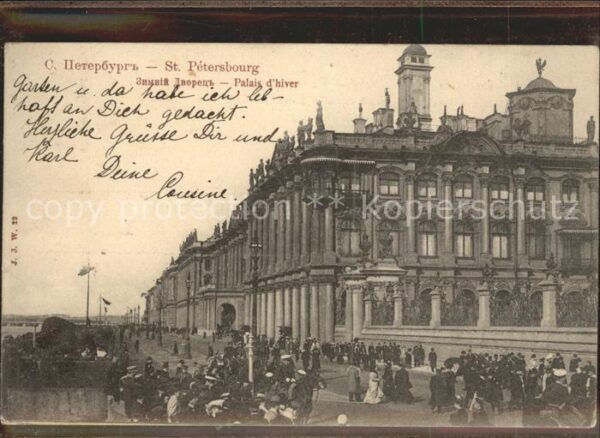 С. Петербургъ — St. Pétersbourg
Зимній Дворецъ — Palais d'hiver
Garten u. da habe ich leb-
haft an Dich gedacht.
Herzliche Grüsse Dir und
Karl
Deine
Cousine
J. J. W. 23
copyright * * * Kopierschutz